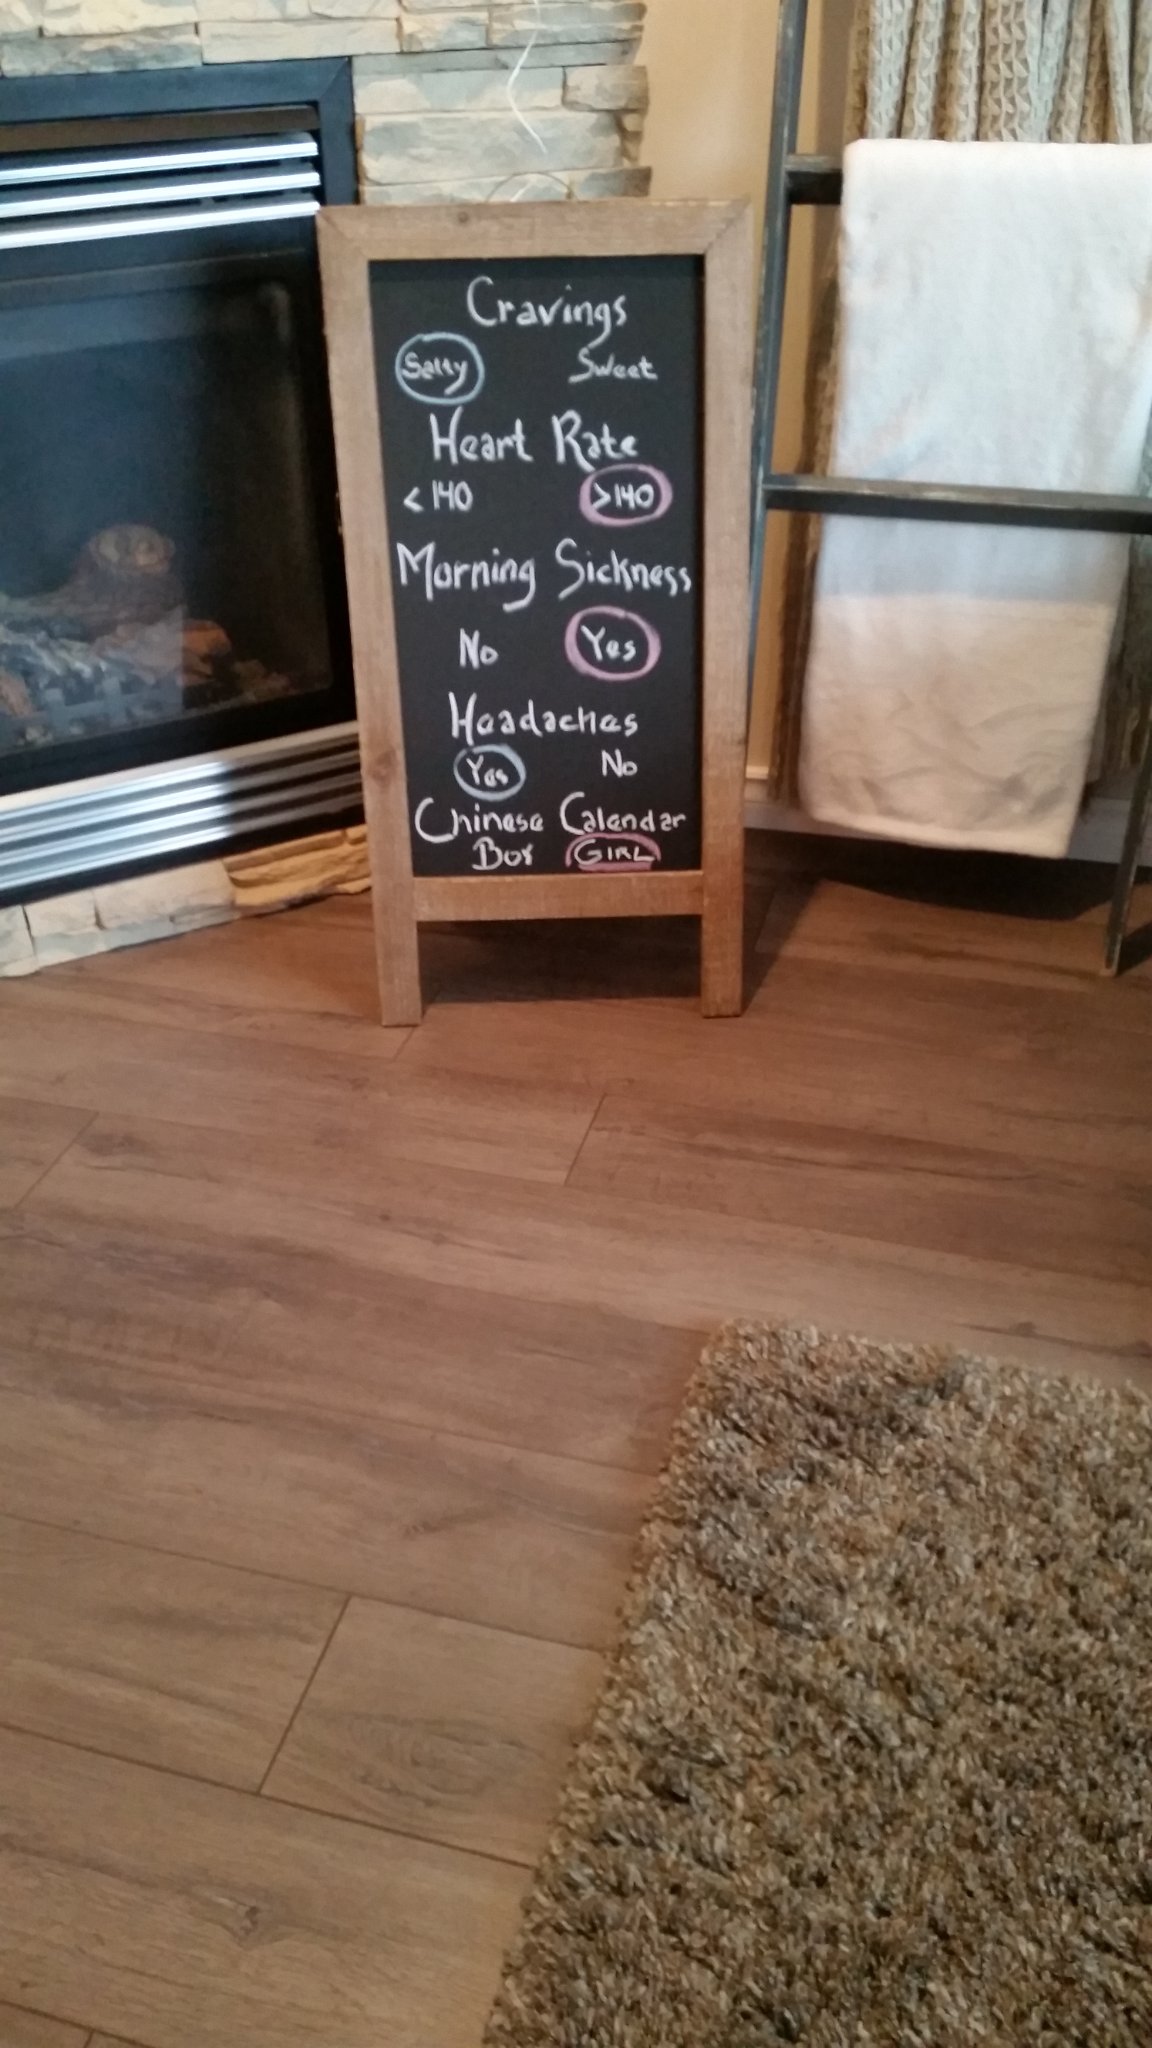 Cravings
Salty Sweet
Heart Rate
<140 >140
Morning Sickness
No Yes
Headaches
Yes No
Chinese Calendar
Boy GIRL